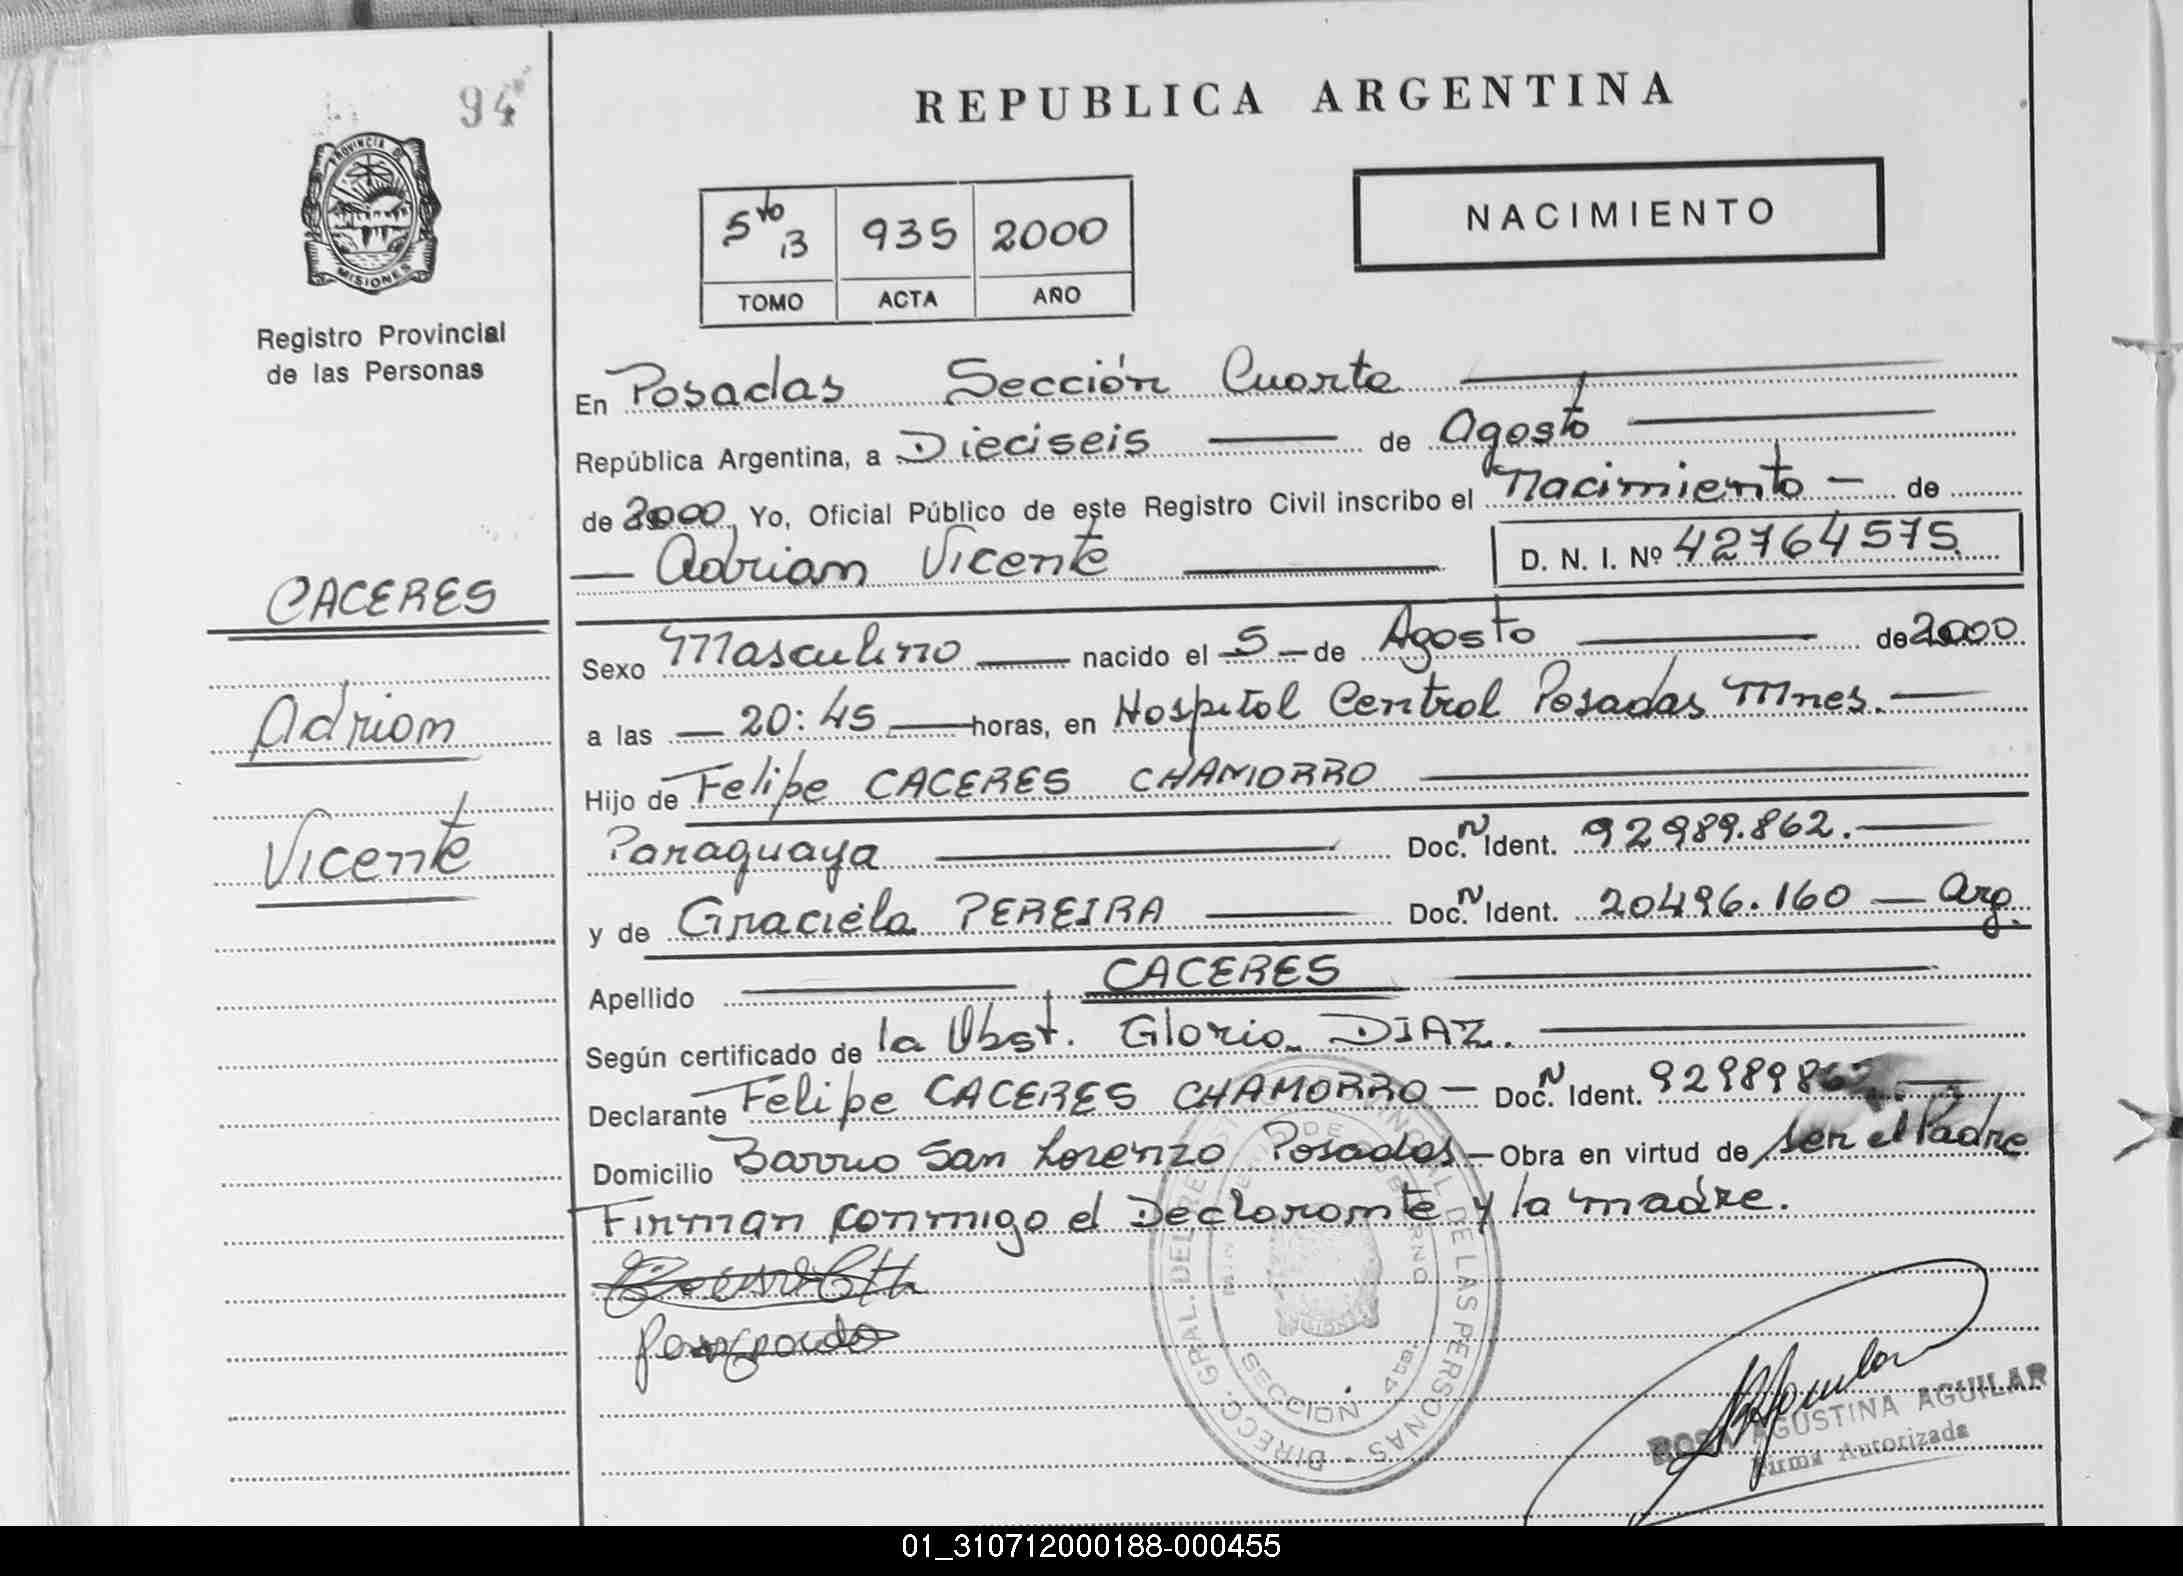 94
REPUBLICA ARGENTINA
PROVINCIA DE
MISIONES
Registro Provincial
de las Personas
5to B 935 2000
TOMO ACTA AÑO
NACIMIENTO
En Posadas Sección Cuarta
República Argentina, a Dieciseis de Agosto
de 2000 Yo, Oficial Público de este Registro Civil inscribo el Nacimiento de
Adrian Vicente D. N. I. Nº 42764575
CACERES
Adrian
Vicente
Sexo Masculino nacido el 5 de Agosto de 2000
a las 20:45 horas, en Hospital Central Posadas Mnes.
Hijo de Felipe CACERES CHAMORRO
Paraguaya Doc. N Ident. 92989.862.
y de Graciela PEREIRA Doc. N Ident. 20496.160 Arg.
Apellido CACERES
Según certificado de la Obst. Gloria DIAZ.
Declarante Felipe CACERES CHAMORRO Doc. N Ident. 92989862
Domicilio Barrio San Lorenzo Posadas Obra en virtud de ser el Padre
Firman conmigo el Declarante y la madre.
SECCION 4ta.
ROSA AGUSTINA AGUILAR
Firma Autorizada
01_310712000188-000455